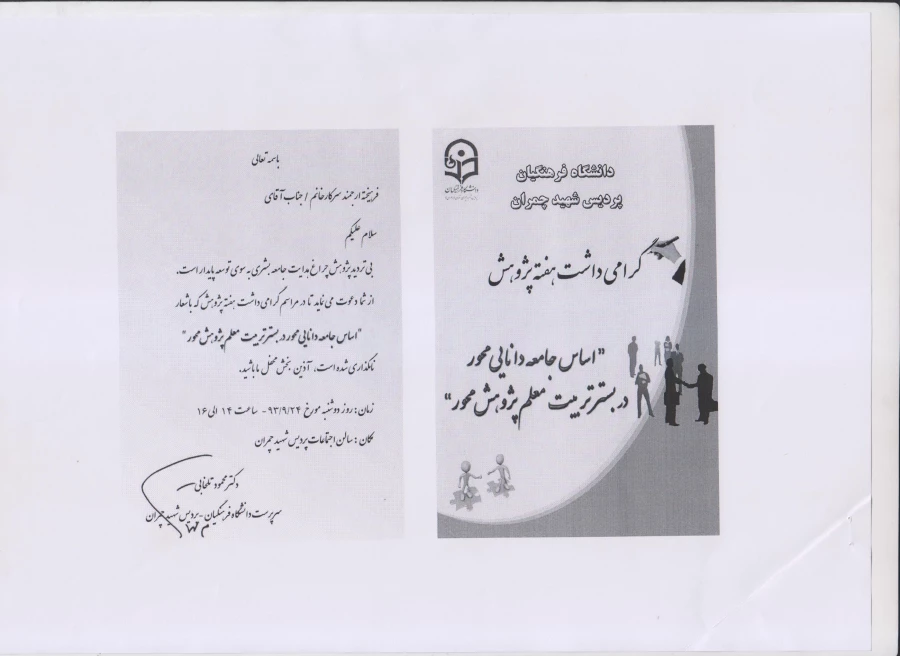 باسمه تعالی
فرهیخته ارجمند سرکارخانم / جناب آقای
سلام علیکم
بی تردید پژوهش چراغ هدایت جامعه بشری به سوی توسعه پایدار است.
از شما دعوت می نماید تا در مراسم گرامی داشت هفته پژوهش که با شعار
"اساس جامعه دانایی محور در بستر تربیت معلم پژوهش محور"
نامگذاری شده است، آذین بخش محفل ما باشید.
زمان: روز دوشنبه مورخ ۹۳/۹/۲۴ - ساعت ۱۴ الی ۱۶
مکان: سالن اجتماعات پردیس شهید چمران
دکتر محمود تلخابی
سرپرست دانشگاه فرهنگیان - پردیس شهید چمران
دانشگاه فرهنگیان
دانشگاه فرهنگیان
پردیس شهید چمران
گرامی داشت هفته پژوهش
"اساس جامعه دانایی محور
در بستر تربیت معلم پژوهش محور"